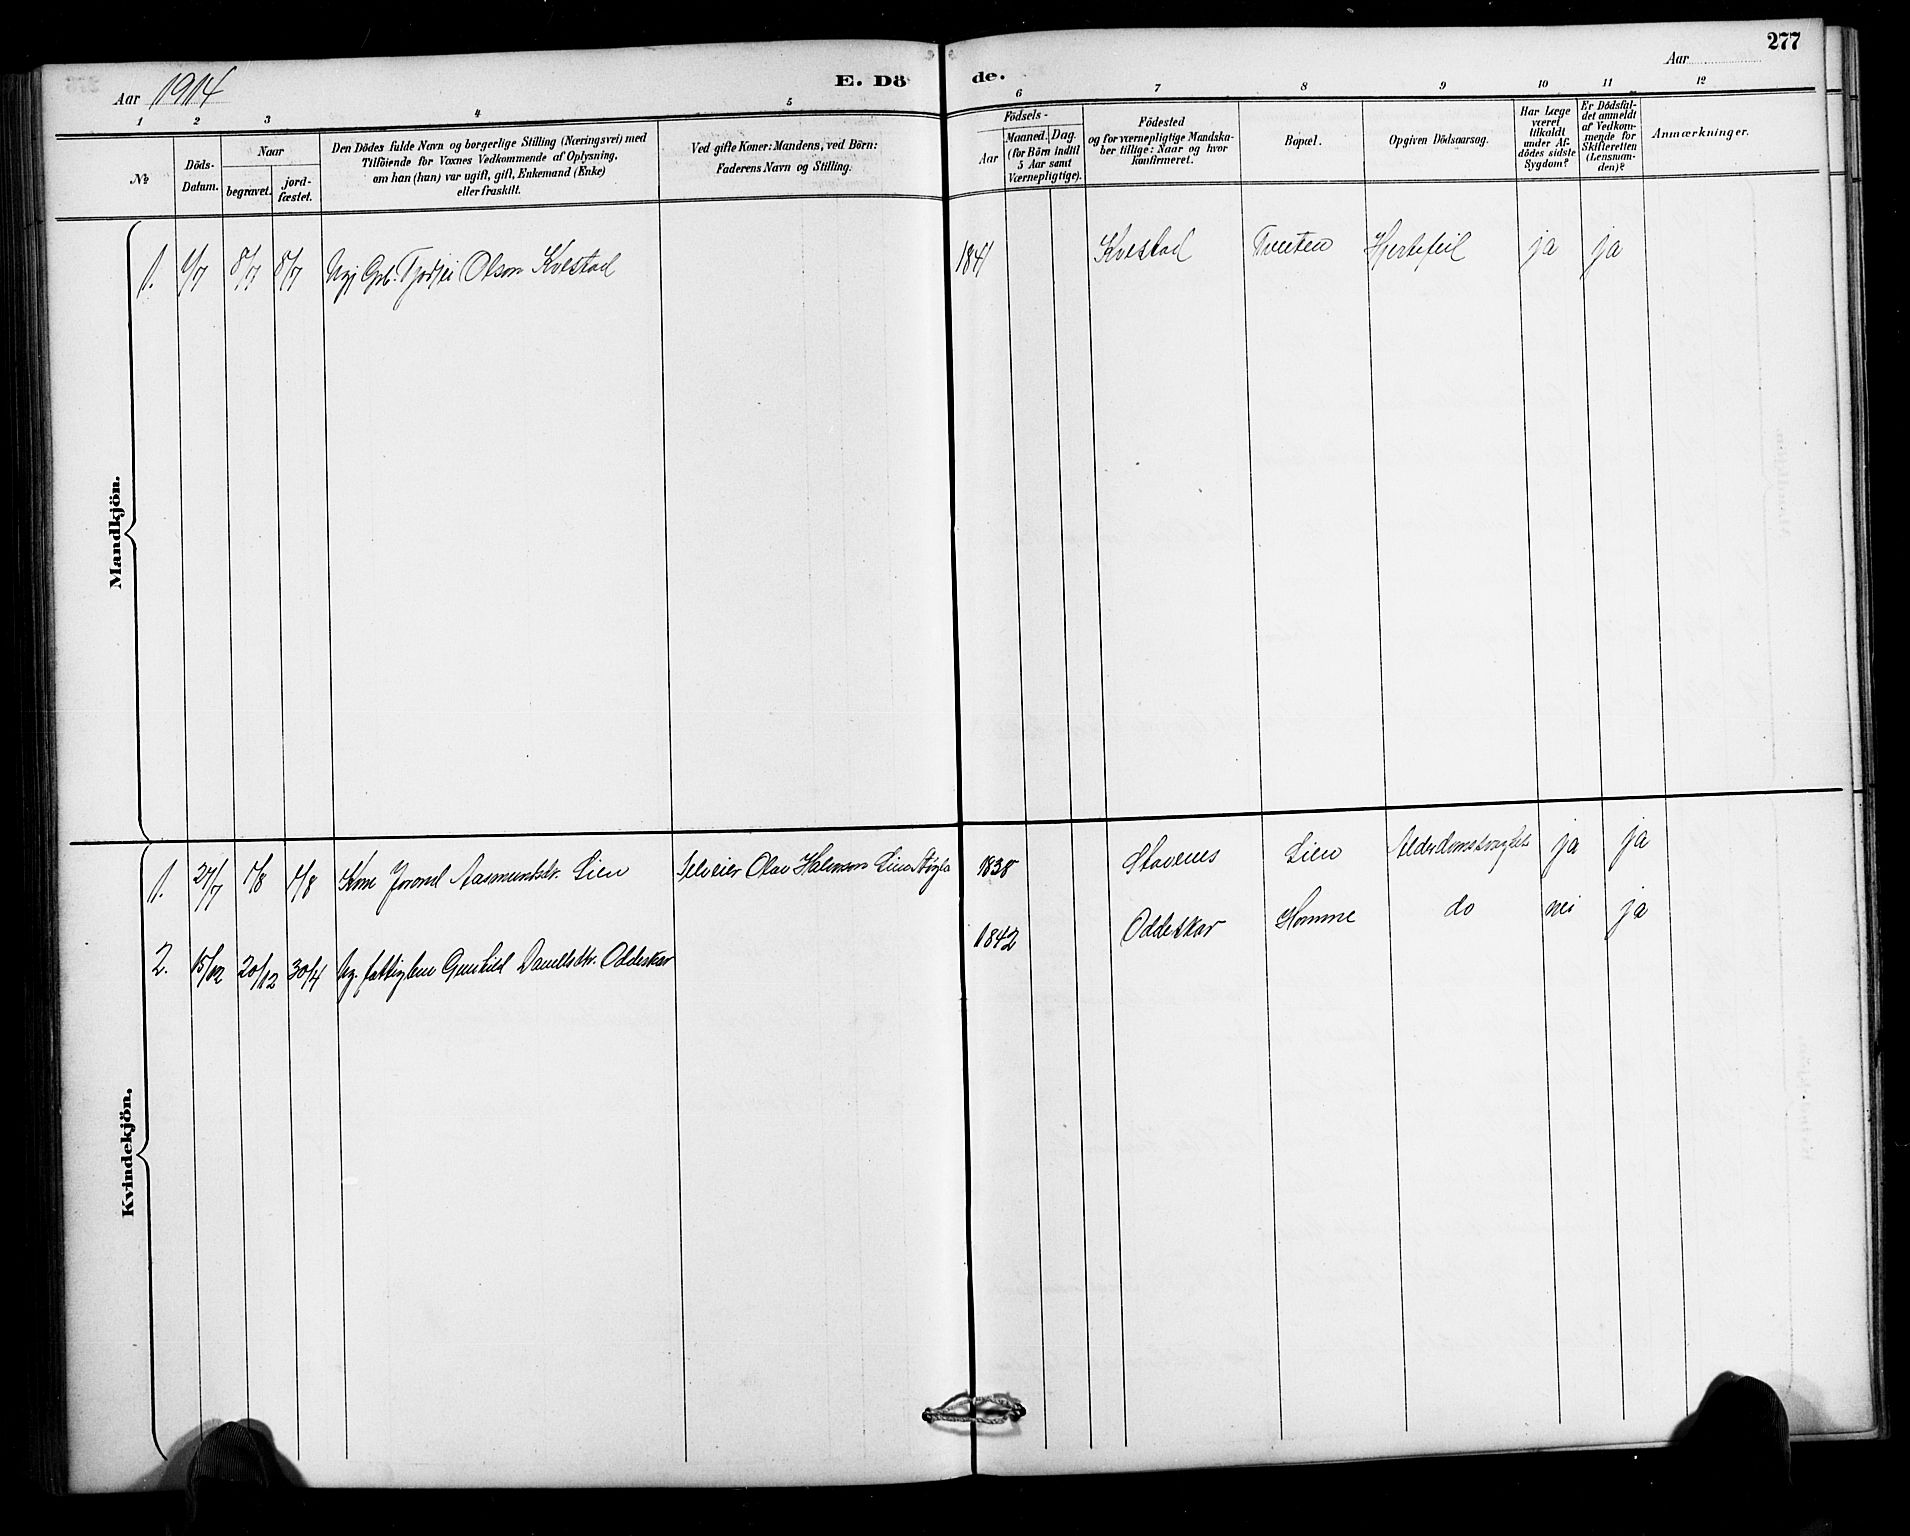 277
Aar 1914
E. Dö
de.
Aar
1 2 3 4 5 6 7 8 9 10 11 12
№
Döds-
Datum.
Naar
begravet.
jord-
fæstet.
Den Dödes fulde Navn og borgerlige Stilling (Næringsvei) med
Tilföiende for Voxnes Vedkommende af Oplysning,
om han (hun) var ugift, gift, Enkemand (Enke)
eller fraskilt.
Ved gifte Koner: Mandens, ved Börn:
Faderens Navn og Stilling.
Födsels-
Aar
Maaned.
Dag.
(for Börn indtil
5 Aar samt
Værnepligtige).
Födested
og for værnepligtige Mandska-
ber tillige: Naar og hvor
konfirmeret.
Bopæl.
Opgiven Dödsaarsag.
Har Læge
været
tilkaldt
under Af-
dödes sidste
Sygdom?
Er Dödsfal-
det anmeldt
af Vedkom-
mende for
Skifteretten
(Lensman-
den)?
Anmærkninger.
Mandkjön.
1. 1/7 8/7 8/7 Olson Kvestad 1841 Kvestad Tveiten Hjertefeil ja ja
Kvindekjön.
1. 27/7 1/8 1/8 Kone Jorond Aasmundsdtr. Lien Selveier Olav Halvorson Lien 1838 Stavenes Lien ja ja
2. 15/12 20/12 30/4 Ug. fattiglem Gunhild Danielsdtr. Oddeskar 1842 Oddeskar Homme do nei ja